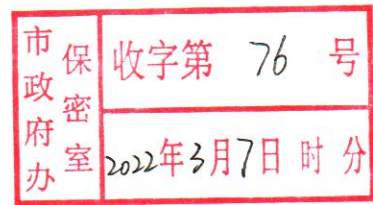 市政府办
保密室
收字第 76 号
2022年3月7日 时 分